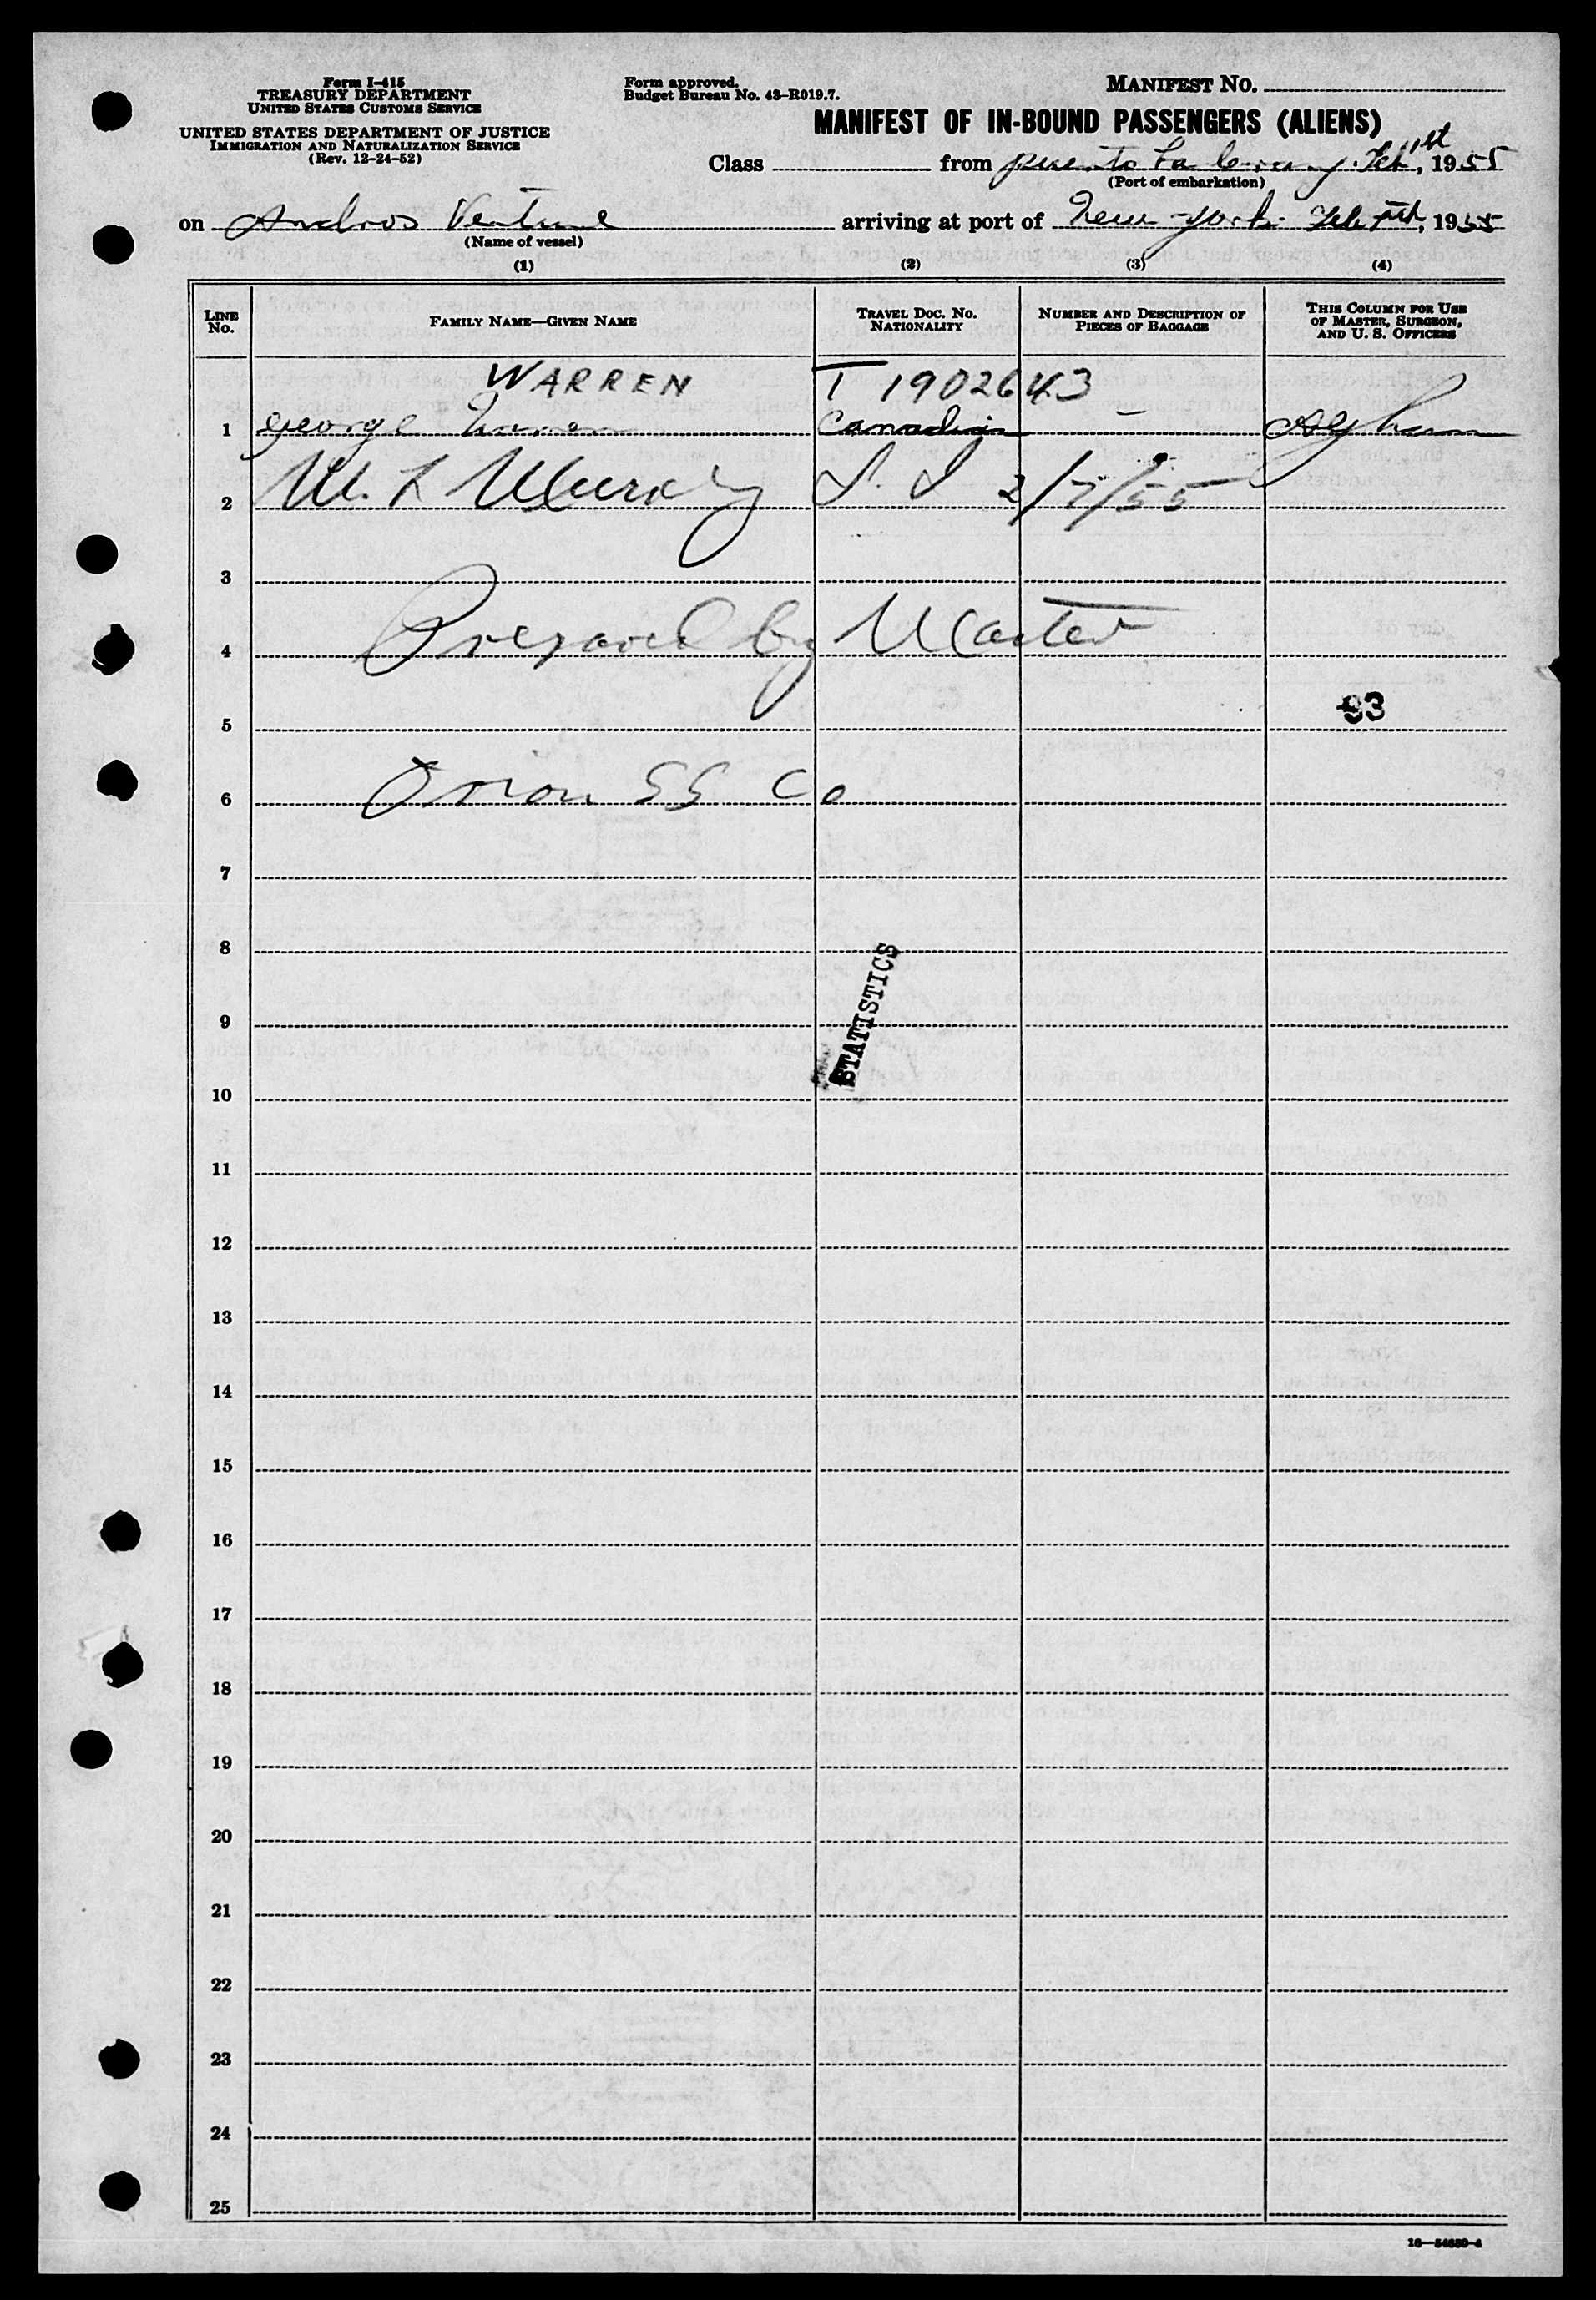 Form I-415
TREASURY DEPARTMENT
UNITED STATES CUSTOMS SERVICE
UNITED STATES DEPARTMENT OF JUSTICE
IMMIGRATION AND NATURALIZATION SERVICE
(Rev. 12-24-52)
Form approved.
Budget Bureau No. 43-R019.7.
MANIFEST NO.
MANIFEST OF IN-BOUND PASSENGERS (ALIENS)
Class from puerto La Feb 1st, 1955
(Port of embarkation)
on Andros Venture arriving at port of New-york Feb 7th, 1955
(Name of vessel)
(1) (2) (3) (4)
LINE No. FAMILY NAME—GIVEN NAME TRAVEL DOC. NO. NATIONALITY NUMBER AND DESCRIPTION OF PIECES OF BAGGAGE THIS COLUMN FOR USE OF MASTER, SURGEON, AND U. S. OFFICERS
WARREN T 1902643
1 george Warren Canadian —
2 W. L Murray S. I 2/7/55
3
4 Prepared by Master
93
5
6 Orion SS Co
7
8
STATISTICS
9
10
11
12
13
14
15
16
17
18
19
20
21
22
23
24
25
16—54680-4